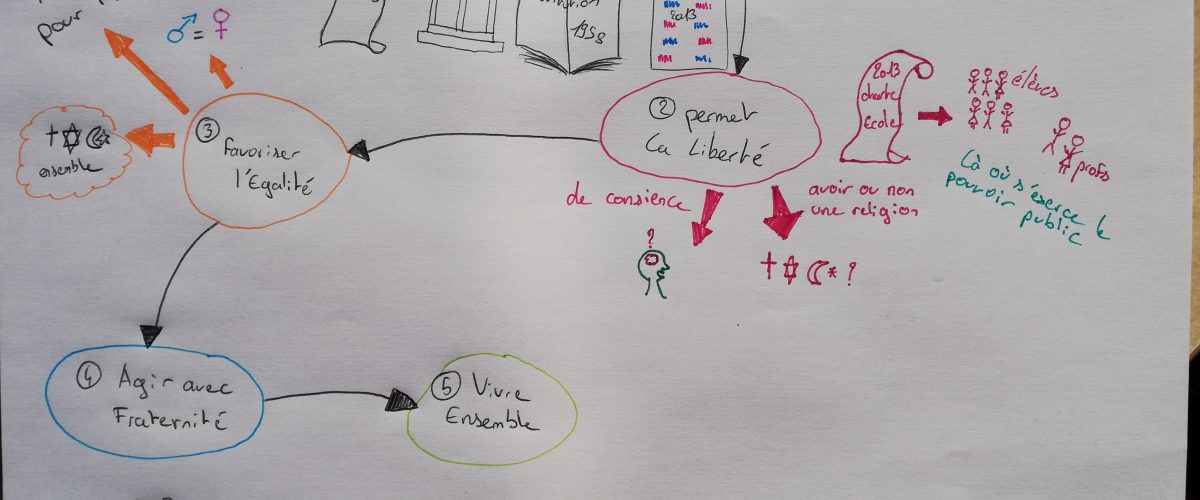 pour
♂ = ♀
1958
2013
② permet
La Liberté
2013
charte
école
élèves
profs
Là où s'exerce le
pouvoir public
avoir ou non
une religion
de consience
?
?
③
Favoriser
l'Egalité
ensemble
④ Agir avec
Fraternité
⑤ Vivre
Ensemble